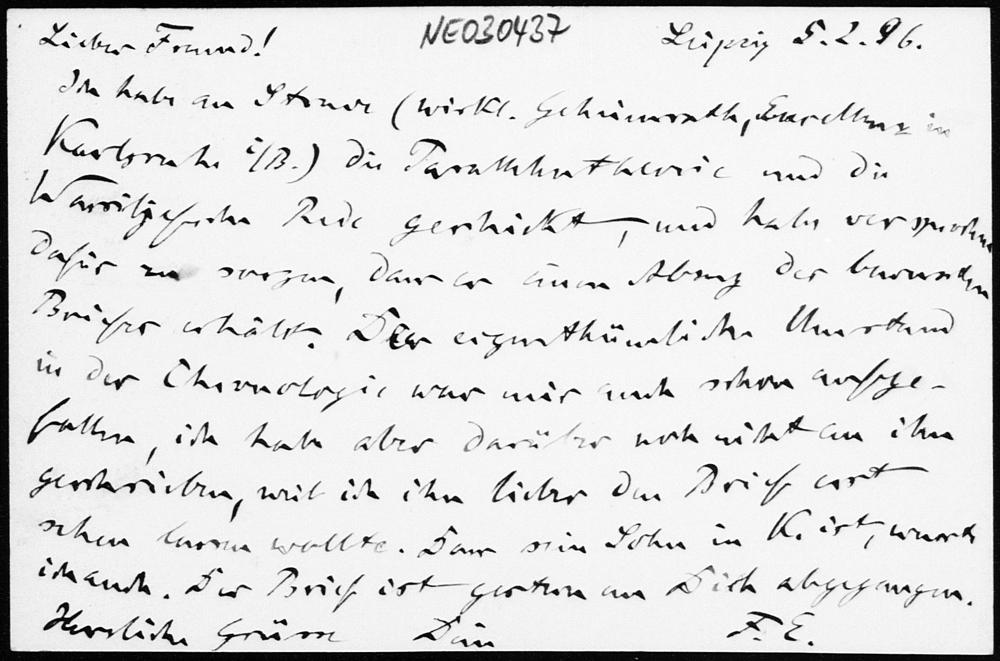 Lieber Freund! NE030437 Leipzig 5.2.96.
Ich habe an Struve (wirkl. Geheimrath, Excellenz in
Karlsruhe i/B.) die Parallelentheorie und die
Wassiljefsche Rede geschickt, und habe versprochen
dafür zu sorgen, dass er einen Abzug der bewussten
Briefes erhält. Der eigenthümliche Umstand
in der Chronologie war mir auch schon aufge-
fallen, ich habe aber darüber noch nicht an ihn
geschrieben, weil ich ihn lieber den Brief erst
sehen lassen wollte. Dass sein Sohn in K. ist, wusste
ich auch. Der Brief ist gestern an Dich abgegangen.
Herzliche Grüsse Dein F. E.